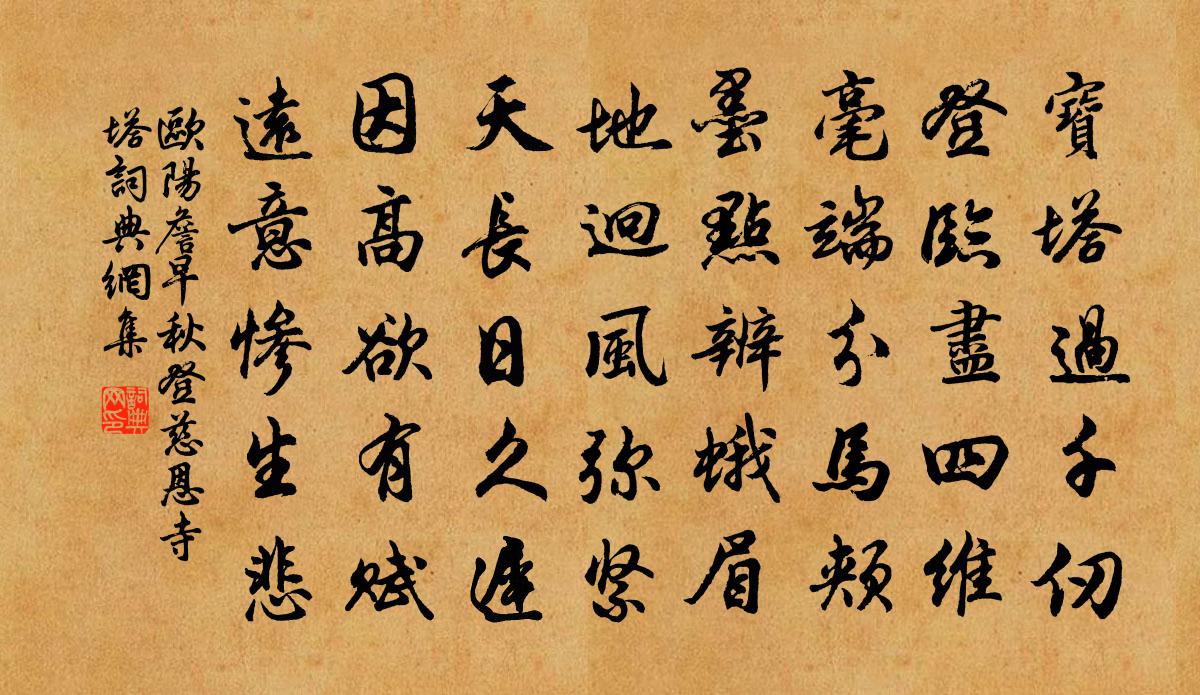 寶塔過千仞
登臨盡四維
毫端分馬頰
墨點辨蛾眉
地迥風弥緊
天長日久遲
因高欲有賦
遠意慘生悲
歐陽詹早秋登慈恩寺
塔詞典網集
詞典网印